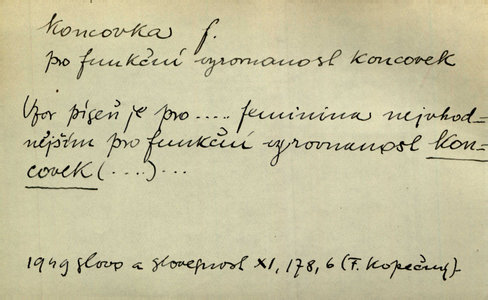 Koncovka f.
pro funkční vyrovnanost koncovek
Vzor píseň je pro ..... feminina nejvhod-
nějším pro funkční vyrovnanost kon-
covek (....) ...
1949 slovo a slovesnost XI, 178, 6 (F. Kopečný)